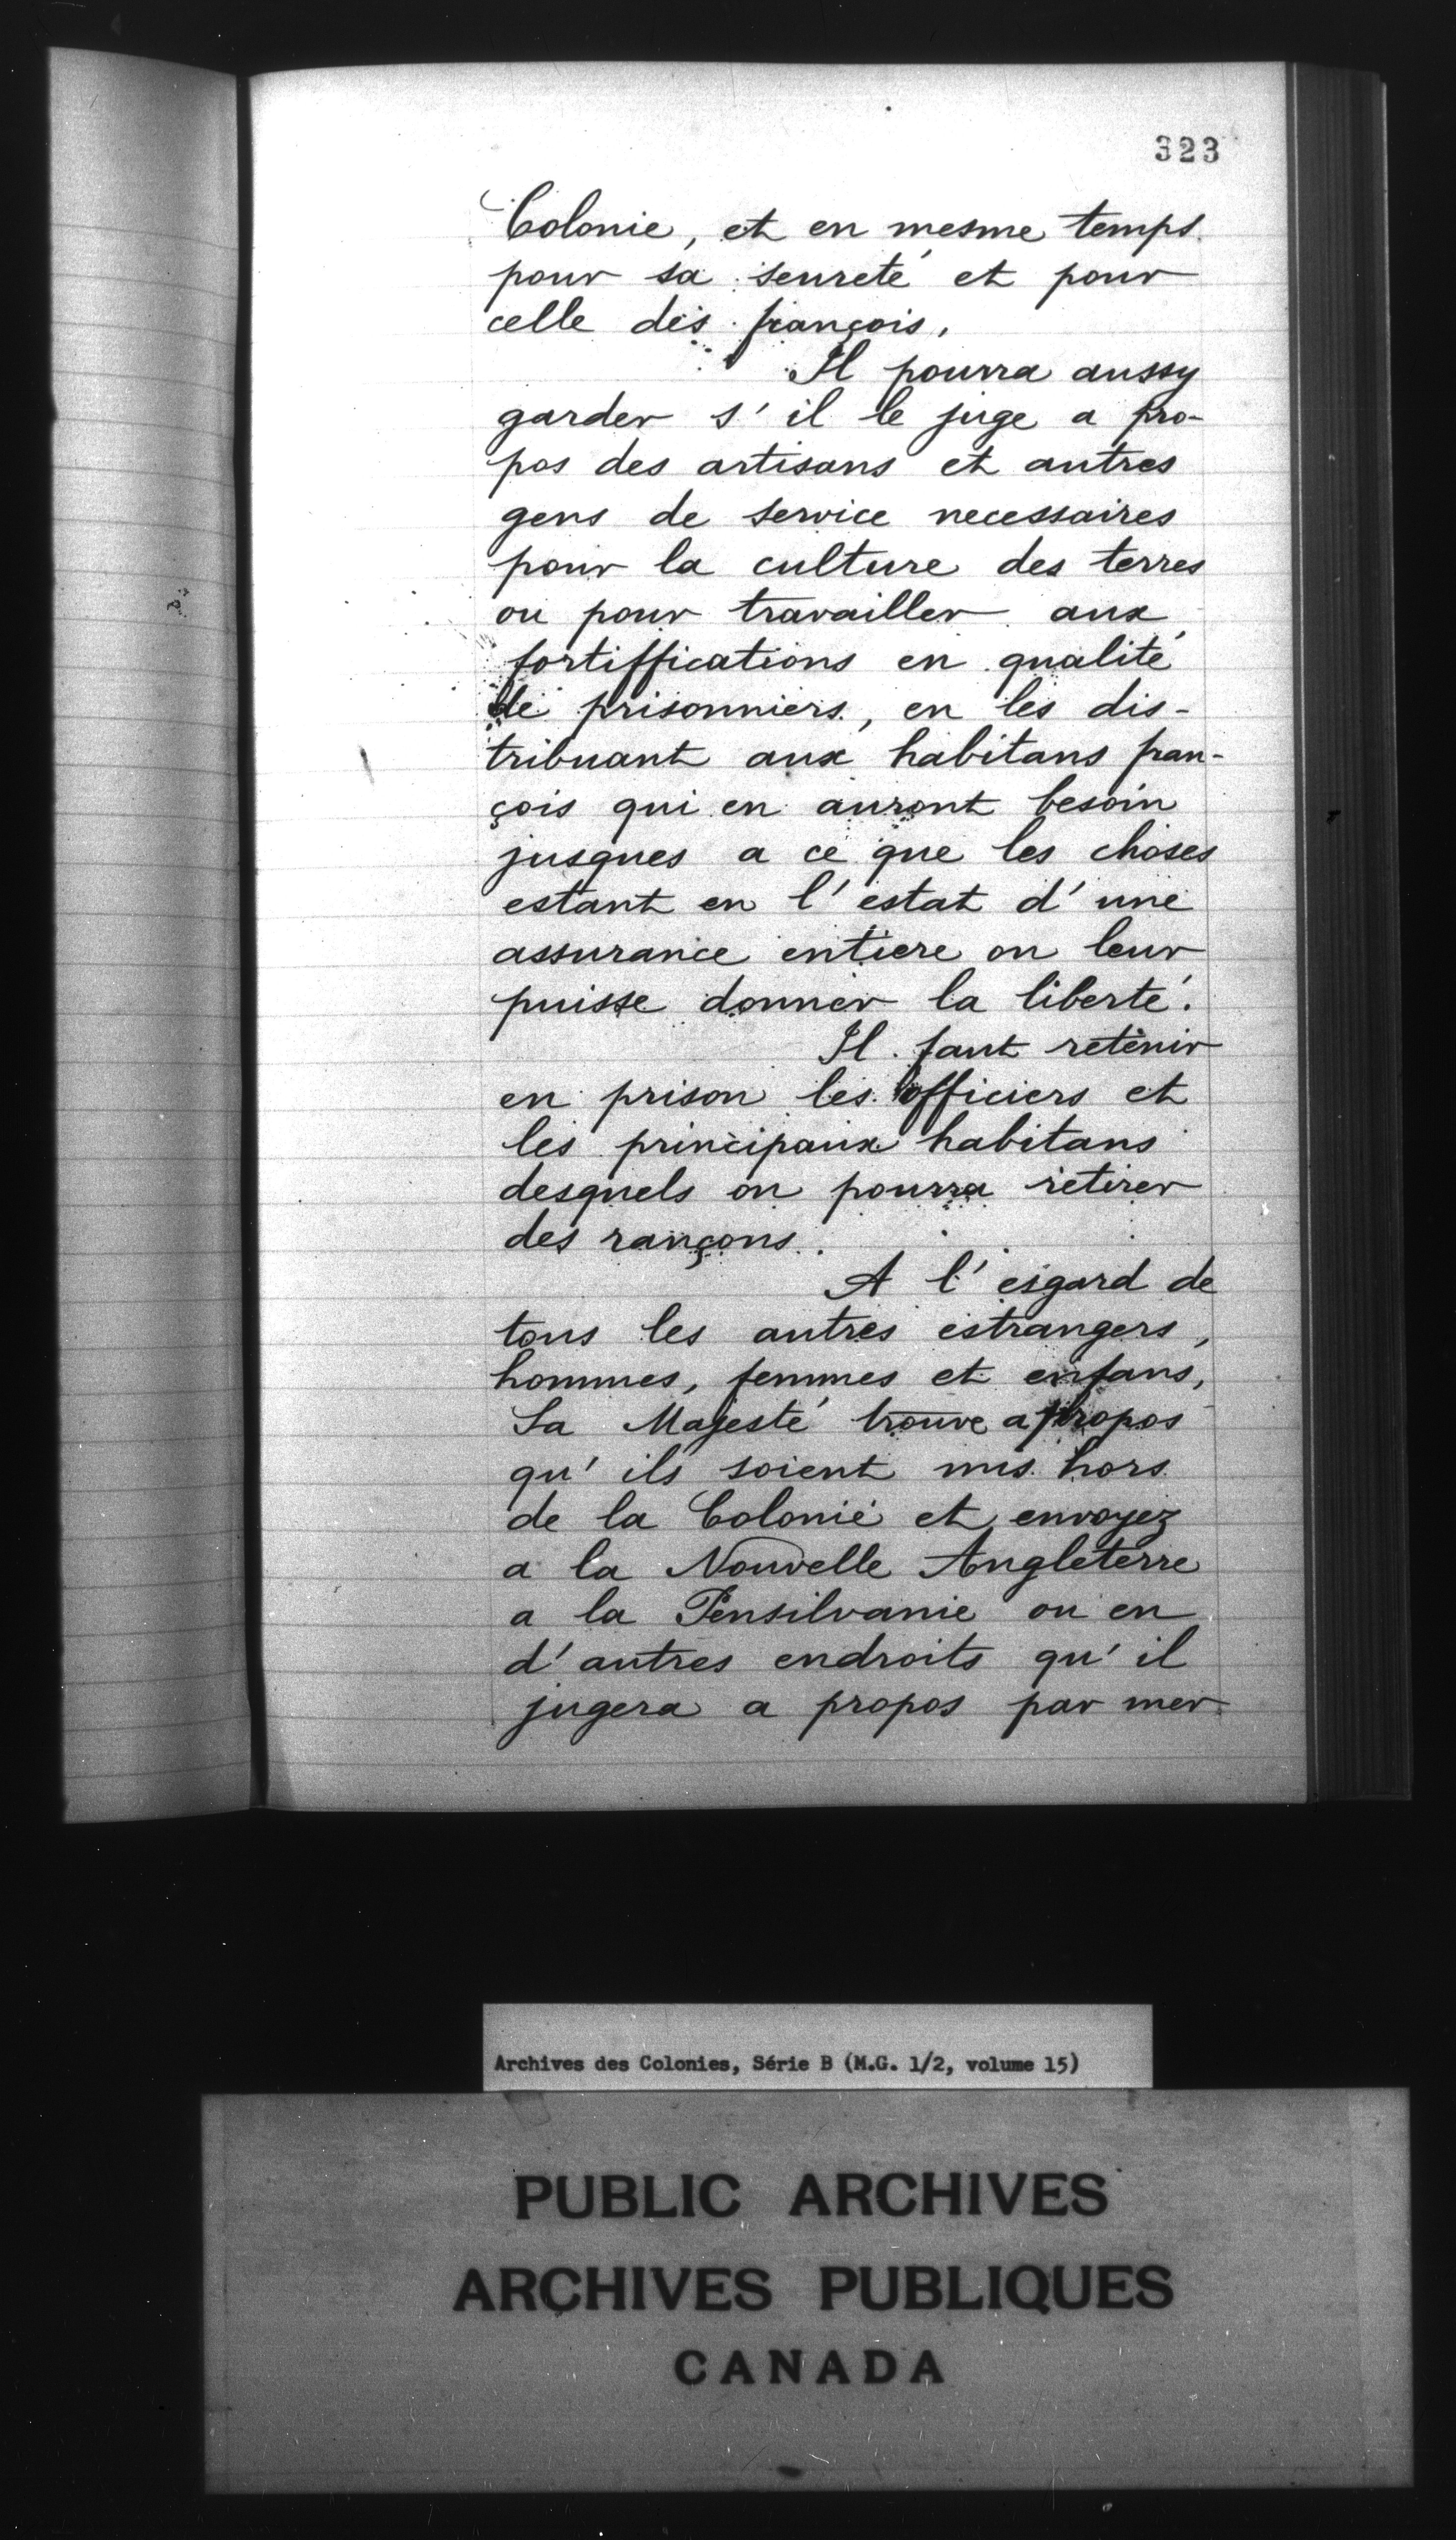 323
Colonie, et en mesme temps
pour sa seureté et pour
celle des françois.
Il pourra aussy
garder s'il le juge a pro-
pos des artisans et autres
gens de service necessaires
pour la culture des terres
ou pour travailler aux
fortiffications en qualité
de prisonniers, en les dis-
tribuant aux habitans fran-
çois qui en auront besoin
jusques a ce que les choses
estant en l'estat d'une
assurance entiere on leur
puisse donner la liberté.
Il faut retenir
en prison les officiers et
les principaux habitans
desquels on pourra retirer
des rançons.
A l'esgard de
tous les autres estrangers,
hommes, femmes et enfans,
Sa Majesté trouve a propos
qu'ils soient mis hors
de la Colonie et envoyez
a la Nouvelle Angleterre
a la Pensilvanie ou en
d'autres endroits qu'il
jugera a propos par mer
Archives des Colonies, Série B (M.G. 1/2, volume 15)
PUBLIC ARCHIVES
ARCHIVES PUBLIQUES
CANADA